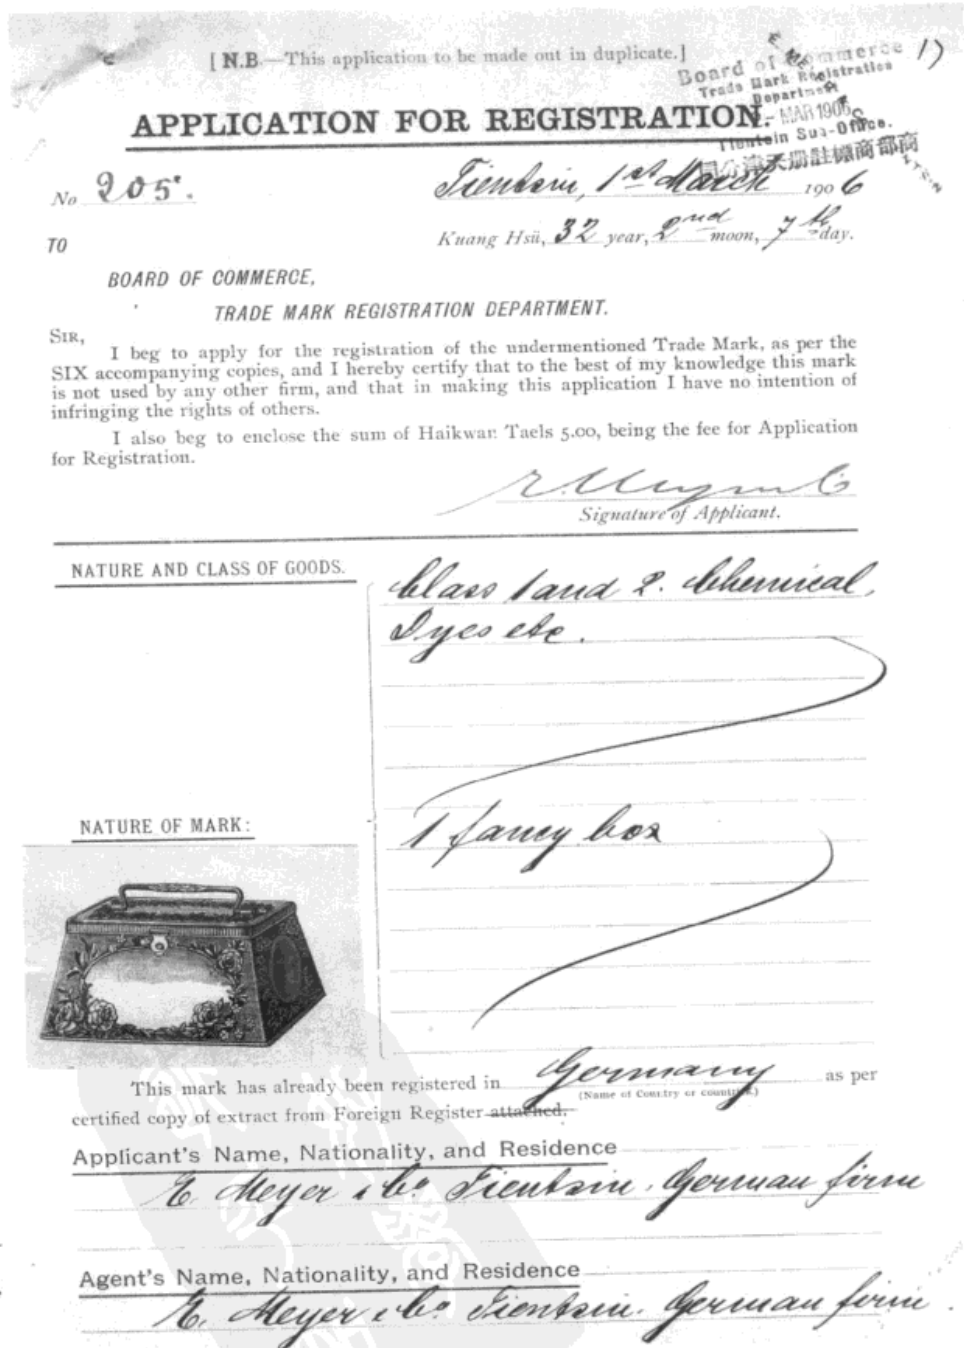 [ N.B.—This application to be made out in duplicate.]
1)
Board of Commerce
Trade Mark Registration
Department
- MAR 1906
Tientsin Sub-Office.
APPLICATION FOR REGISTRATION.
No 205.
Tientsin, 1st March 1906
Kuang Hsü, 32 year, 2nd moon, 7th day.
TO
BOARD OF COMMERCE,
TRADE MARK REGISTRATION DEPARTMENT.
SIR,
I beg to apply for the registration of the undermentioned Trade Mark, as per the
SIX accompanying copies, and I hereby certify that to the best of my knowledge this mark
is not used by any other firm, and that in making this application I have no intention of
infringing the rights of others.
I also beg to enclose the sum of Haikwan Taels 5.00, being the fee for Application
for Registration.
E. Meyer & Co
Signature of Applicant.
NATURE AND CLASS OF GOODS.
Class 1 and 2. Chemical,
Dyes etc.
NATURE OF MARK:
1 fancy box
This mark has already been registered in Germany as per
(Name of Country or countries.)
certified copy of extract from Foreign Register attached.
Applicant's Name, Nationality, and Residence
E. Meyer & Co Tientsin. German firm
Agent's Name, Nationality, and Residence
E. Meyer & Co Tientsin. German firm.